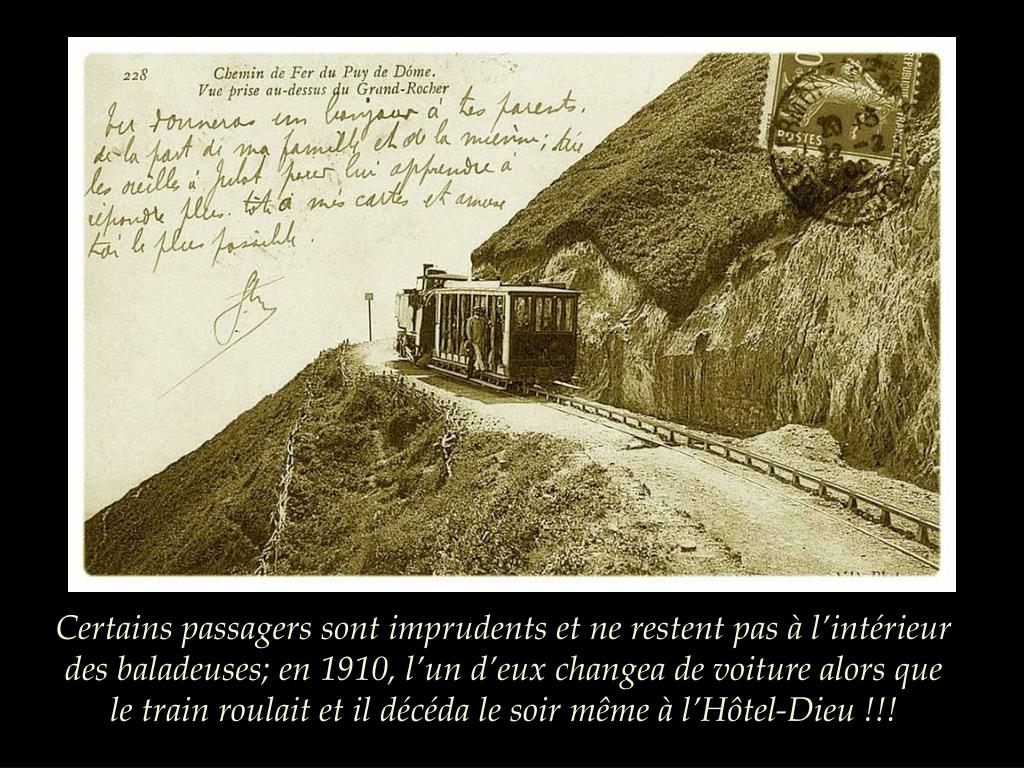 228
Chemin de Fer du Puy de Dôme.
Vue prise au-dessus du Grand-Rocher
Tu donneras un bonjour à tes parents.
de la part de ma famille et de la mienne; tire
les oreilles à pour lui apprendre à
répondre plus tôt à mes cartes et amuse
toi le plus possible.
POSTES
Certains passagers sont imprudents et ne restent pas à l’intérieur
des baladeuses; en 1910, l’un d’eux changea de voiture alors que
le train roulait et il décéda le soir même à l’Hôtel-Dieu !!!